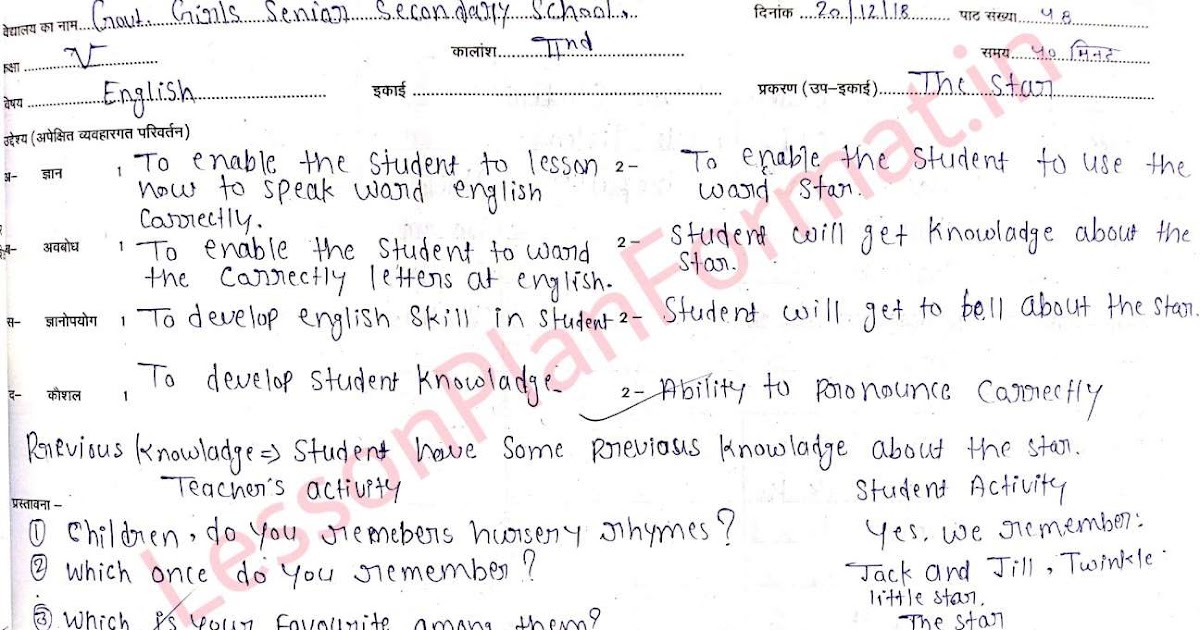 वेद्यालय का नाम....Govt. Girls Senior Secondary School, दिनांक ....20/12/18........ पाठ संख्या....५8
क्षा ........V........ कालांश......IInd........ समय...५० मिनट
वेषय ........English........ इकाई ........ प्रकरण (उप-इकाई)....The Star
उद्देश्य (अपेक्षित व्यवहारगत परिवर्तन)
अ- ज्ञान 1 To enable the student to lesson 2- To enable the student to use the
how to speak word english word star.
correctly.
ब- अवबोध 1 To enable the student to word 2- Student will get knowladge about the
the correctly letters at english. star.
स- ज्ञानोपयोग 1 To develop english skill in student 2- Student will get to bell about the star.
द- कौशल 1 To develop student knowladge 2- Ability to pronounce correctly
Previous knowladge => Student have some previous knowladge about the star.
Teacher's activity Student Activity
प्रस्तावना –
① Children, do you remebers nursery rhymes? Yes, we remember:
② which once do you remember? Jack and Jill, Twinkle
little star.
③ which is your favourite among them? The star
LessonPlanFormat.in